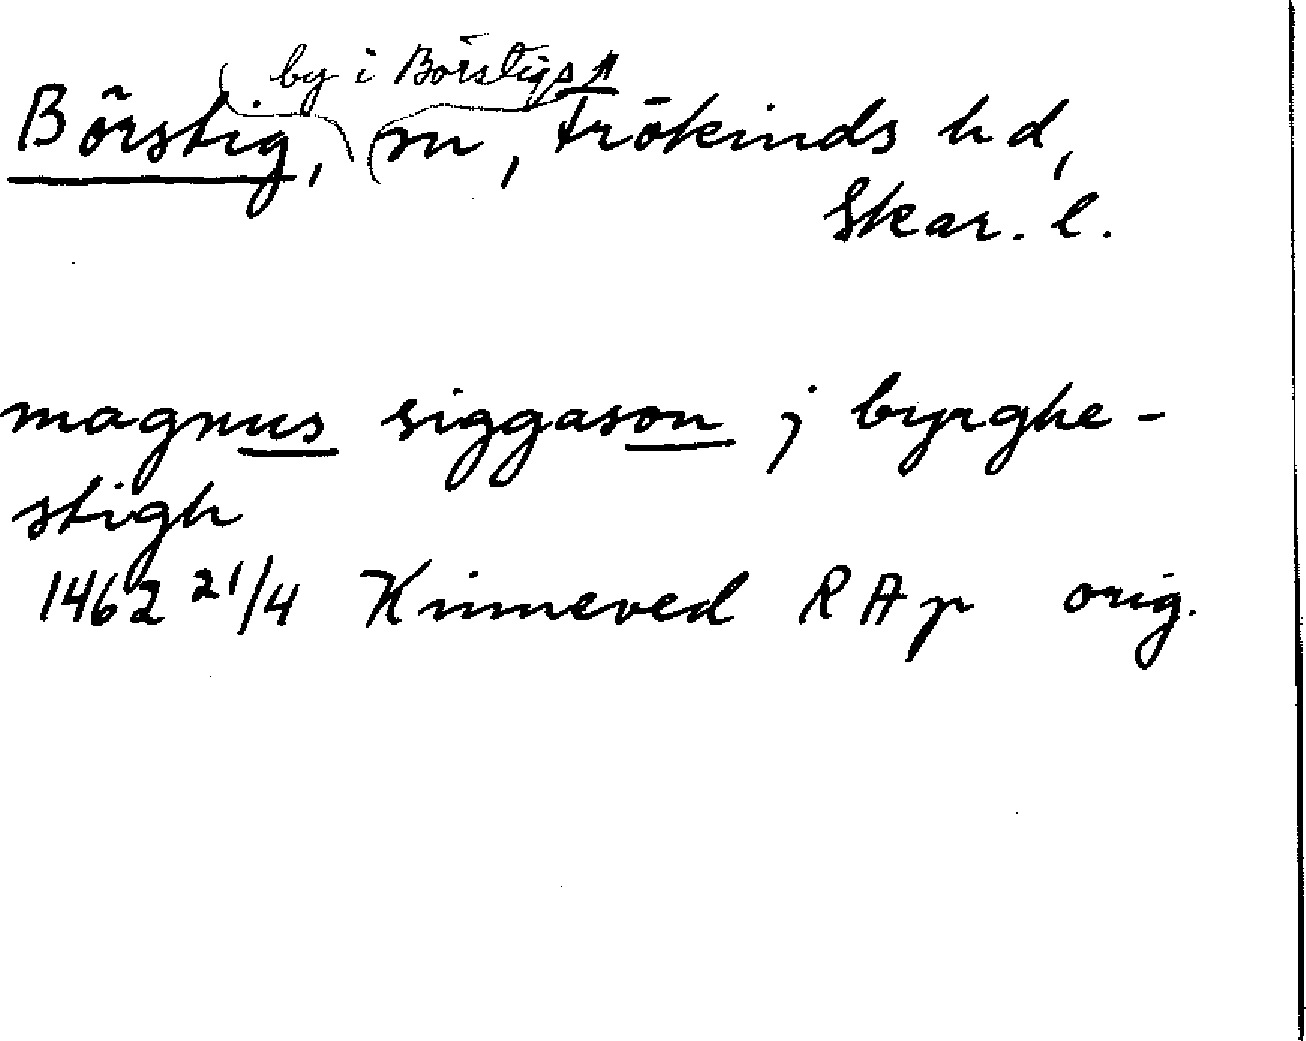 by i Börstigs
Börstig, sn, Frökinds hd,
Skar. l.
magnus siggason j byrghe-
stigh
1462 21/4 Kinneved RAp orig.